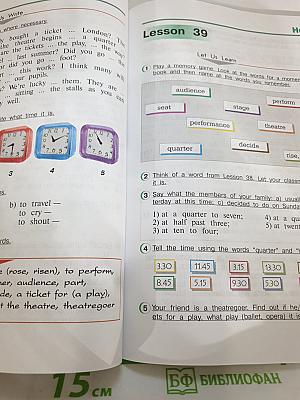 Write
where necessary.
bought a ticket ... London?
the theatre begins ... a quarter
are the tickets ... the play, ... the
... last summer? Did you go ... the
did you go ... foot?
... this work? I think many will
our pupils.
We're lucky ... them. They are
... acting ... the stalls as you can
well.
what time it is.
3
4
5
b) to travel —
to cry —
to shout —
(rose, risen), to perform,
audience, part,
a ticket for (a play),
the theatre, theatregoer
Lesson 39
Let Us Learn
1 Play a memory game. Look at the words for a
book and then name all the words you remember.
audience
seat
stage
perform
performance
theatre
quarter
decide
rise
2 Think of a word from Lesson 38. Let your
it is.
3 Say what the members of your family: a) usually
terday at this time; c) decided to do on
1) at a quarter to seven;
4) at a
2) at half past three;
5) at
3) at ten to four;
4 Tell the time using the words "quarter" and
3.30
11.45
3.15
13.30
8.45
5.15
9.30
5.30
5 Your friend is a theatregoer. Find out if he/
ets for a play, what play (ballet, opera) it is
15 см
БФ БИБЛИОФАН